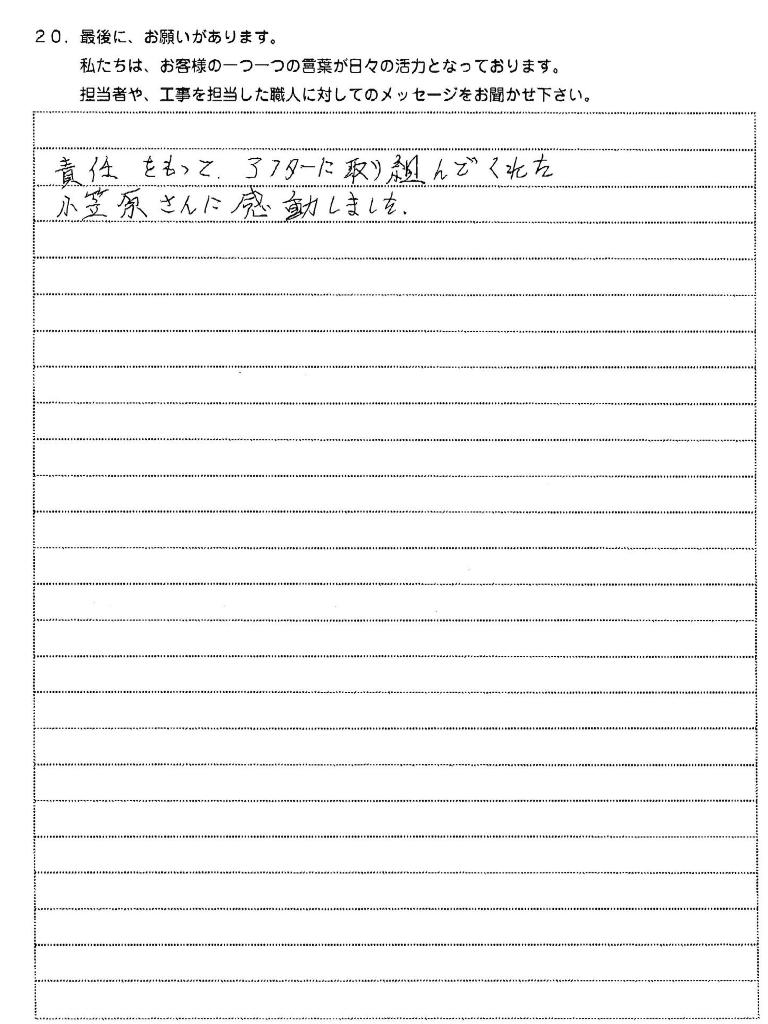 20. 最後に、お願いがあります。
私たちは、お客様の一つ一つの言葉が日々の活力となっております。
担当者や、工事を担当した職人に対してのメッセージをお聞かせ下さい。
責任をもって、アフターに取り組んでくれた
小笠原さんに感動しました。